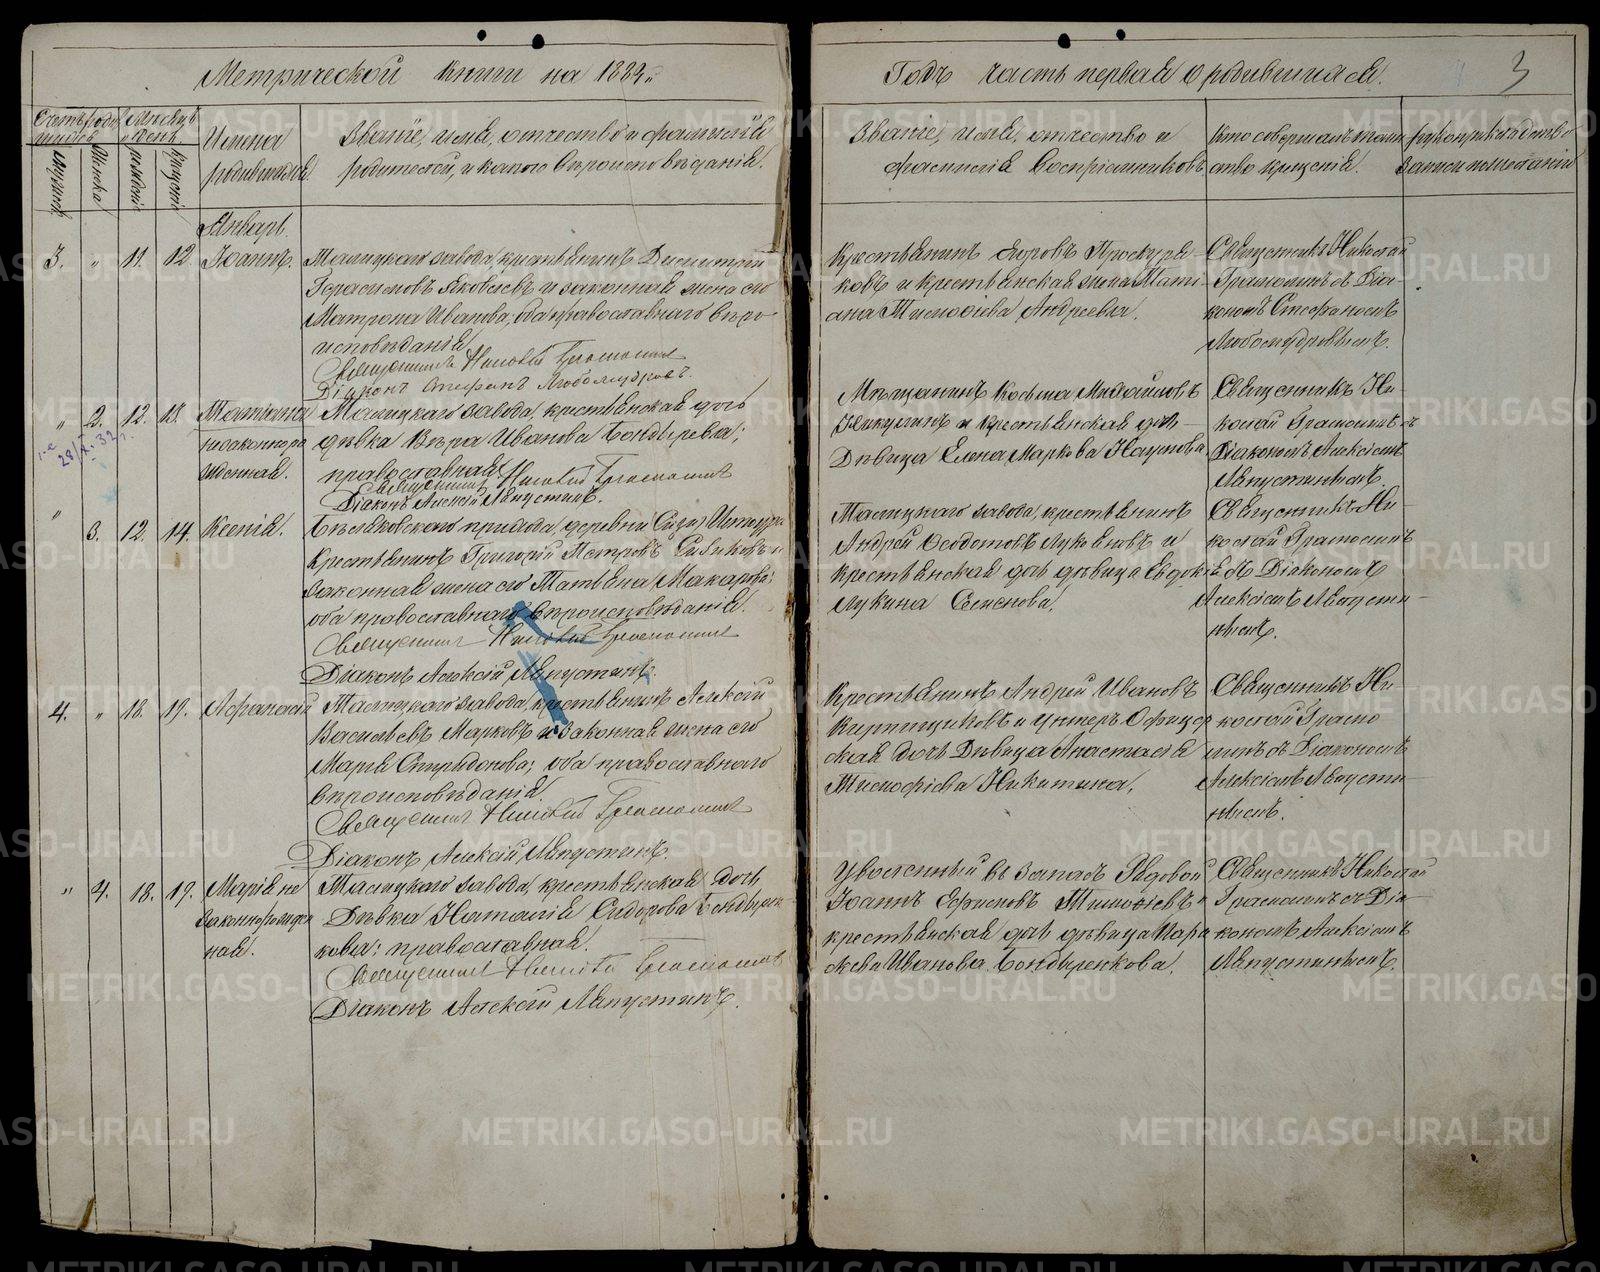 Метрической книги на 1884.
Годъ часть первая о родившихся.
3
Счетъ родившихся
Мѣсяцъ и день
Мужеска
Женска
рожденія
крещенія
Имена
родившихся
Званіе, имя, отчество и фамилія
родителей, и какого вѣроисповѣданія.
Званіе, имя, отчество и
фамилія воспріемниковъ
Кто совершалъ таин
ство крещенія.
Рукоприкладство
записи по желанію
Январь.
3. " 11. 12 Іоаннъ.
Талицкаго завода, крестьянинъ Димитрій
Герасимовъ Яковлевъ и законная жена его
Матрона Иванова, оба православнаго вѣро
исповѣданія
Священникъ Николай Грамолинъ
Діаконъ Стефанъ Любомудровъ.
Крестьянинъ Егоръ Проскуря-
ковъ и крестьянская жена Тати-
ана Тимоѳіева Андреевы.
Священникъ Николай
Грамолинъ съ Діа-
кономъ Стефаномъ
Любомудровымъ.
" 2. 12. 13. Татіана
незаконноро
жденная.
28/X. 32 г.
Талицкаго завода, крестьянская дочь
дѣвка Вѣра Иванова Бондырева;
православная
Священникъ Николай Грамолинъ
Діаконъ Алексій Лапустинъ.
Мѣщанинъ Косьма Михайловъ
Никулинъ и крестьянская дочь
Дѣвица Елена Маркова Наумова
Священникъ Ни-
колай Грамолинъ съ
Діакономъ Алексіемъ
Лапустинымъ.
" 3. 12. 14. Ксенія.
Бѣляковскаго прихода, деревни
Крестьянинъ Григорій Петровъ Сивиковъ и
Законная жена его Татьяна Макарова;
оба православнаго вѣроисповѣданія.
Священникъ Николай Грамолинъ
Діаконъ Алексій Лапустинъ.
Талицкаго завода, крестьянинъ
Андрей Ѳедотовъ Луковновъ и
крестьянская дочь дѣвица Евдокія
Лукина Семенова.
Священникъ Ни-
колай Грамолинъ
съ Діакономъ
Алексіемъ Лапусти-
нымъ.
4. " 18. 19. Афанасій
Талицкаго завода, крестьянинъ Алексій
Васильевъ Марковъ и законная жена его
Марія Спиридонова; оба православнаго
вѣроисповѣданія
Священникъ Николай Грамолинъ
Діаконъ Алексій Лапустинъ.
Крестьянинъ Андрей Ивановъ
Кирпищиковъ и Унтеръ Офицер
ская дочь Дѣвица Анастасія
Тимофіева Никитина.
Священникъ Ни-
колай Грамо
линъ съ Діакономъ
Алексіемъ Лапусти-
нымъ.
" 4. 18. 19. Марія не
законнорожден
ная.
Талицкаго завода, крестьянская дочь
Дѣвка Наталія Сидорова Бондырен-
кова; православная.
Священникъ Николай Грамолинъ
Діаконъ Алексій Лапустинъ.
Уволенный въ запасъ Рядовой
Іоаннъ Ефимовъ Тимоѳіевъ и
крестьянская дочь дѣвица Пара
скева Иванова Бондыренкова.
Священникъ Николай
Грамолинъ съ Діа-
кономъ Алексіемъ
Лапустинымъ.
METRIKI.GASO-URAL.RU